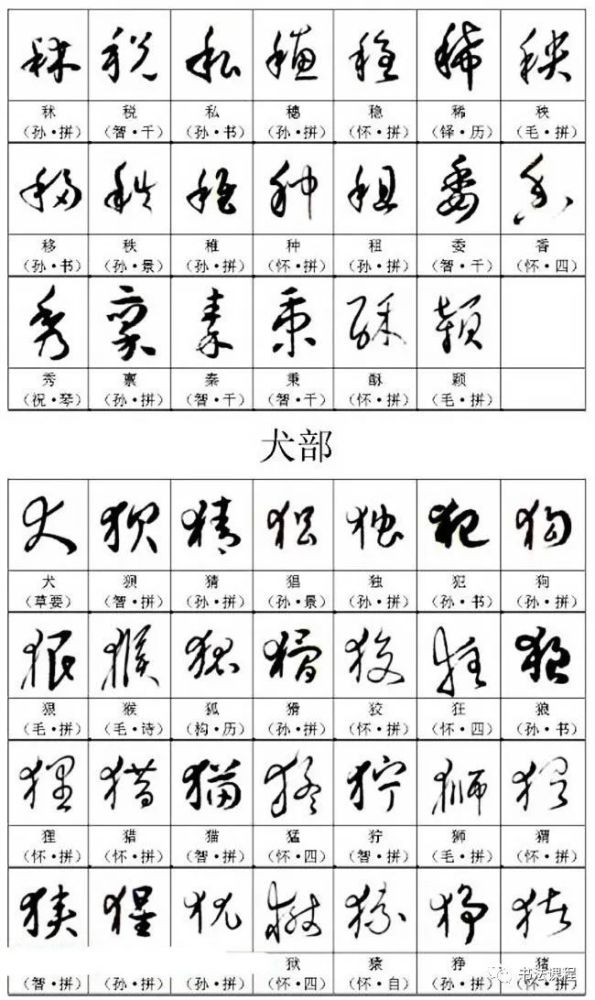 秣 税 私 穗 稳 稀 秧
(孙·拼) (智·千) (孙·书) (孙·拼) (怀·拼) (铎·历) (毛·拼)
移 秩 稚 种 租 委 香
(孙·书) (孙·景) (孙·拼) (怀·拼) (孙·拼) (智·千) (怀·四)
秀 禀 秦 秉 酥 颖
(祝·琴) (孙·拼) (智·千) (智·千) (怀·拼) (毛·拼)
犬部
犬 狈 猜 猖 独 犯 狗
(草要) (智·拼) (孙·拼) (孙·景) (孙·拼) (孙·书) (孙·拼)
狠 猴 狐 猾 狡 狂 狼
(毛·拼) (毛·诗) (构·历) (孙·拼) (怀·拼) (怀·四) (孙·书)
狸 猎 猫 猛 狞 狮 猬
(怀·拼) (怀·拼) (智·拼) (怀·四) (智·拼) (毛·拼) (怀·拼)
狱 猿 狰 猪
(智·拼) (孙·拼) (孙·拼) (怀·四) (怀·自) (孙·拼) (孙·拼)
书法课程